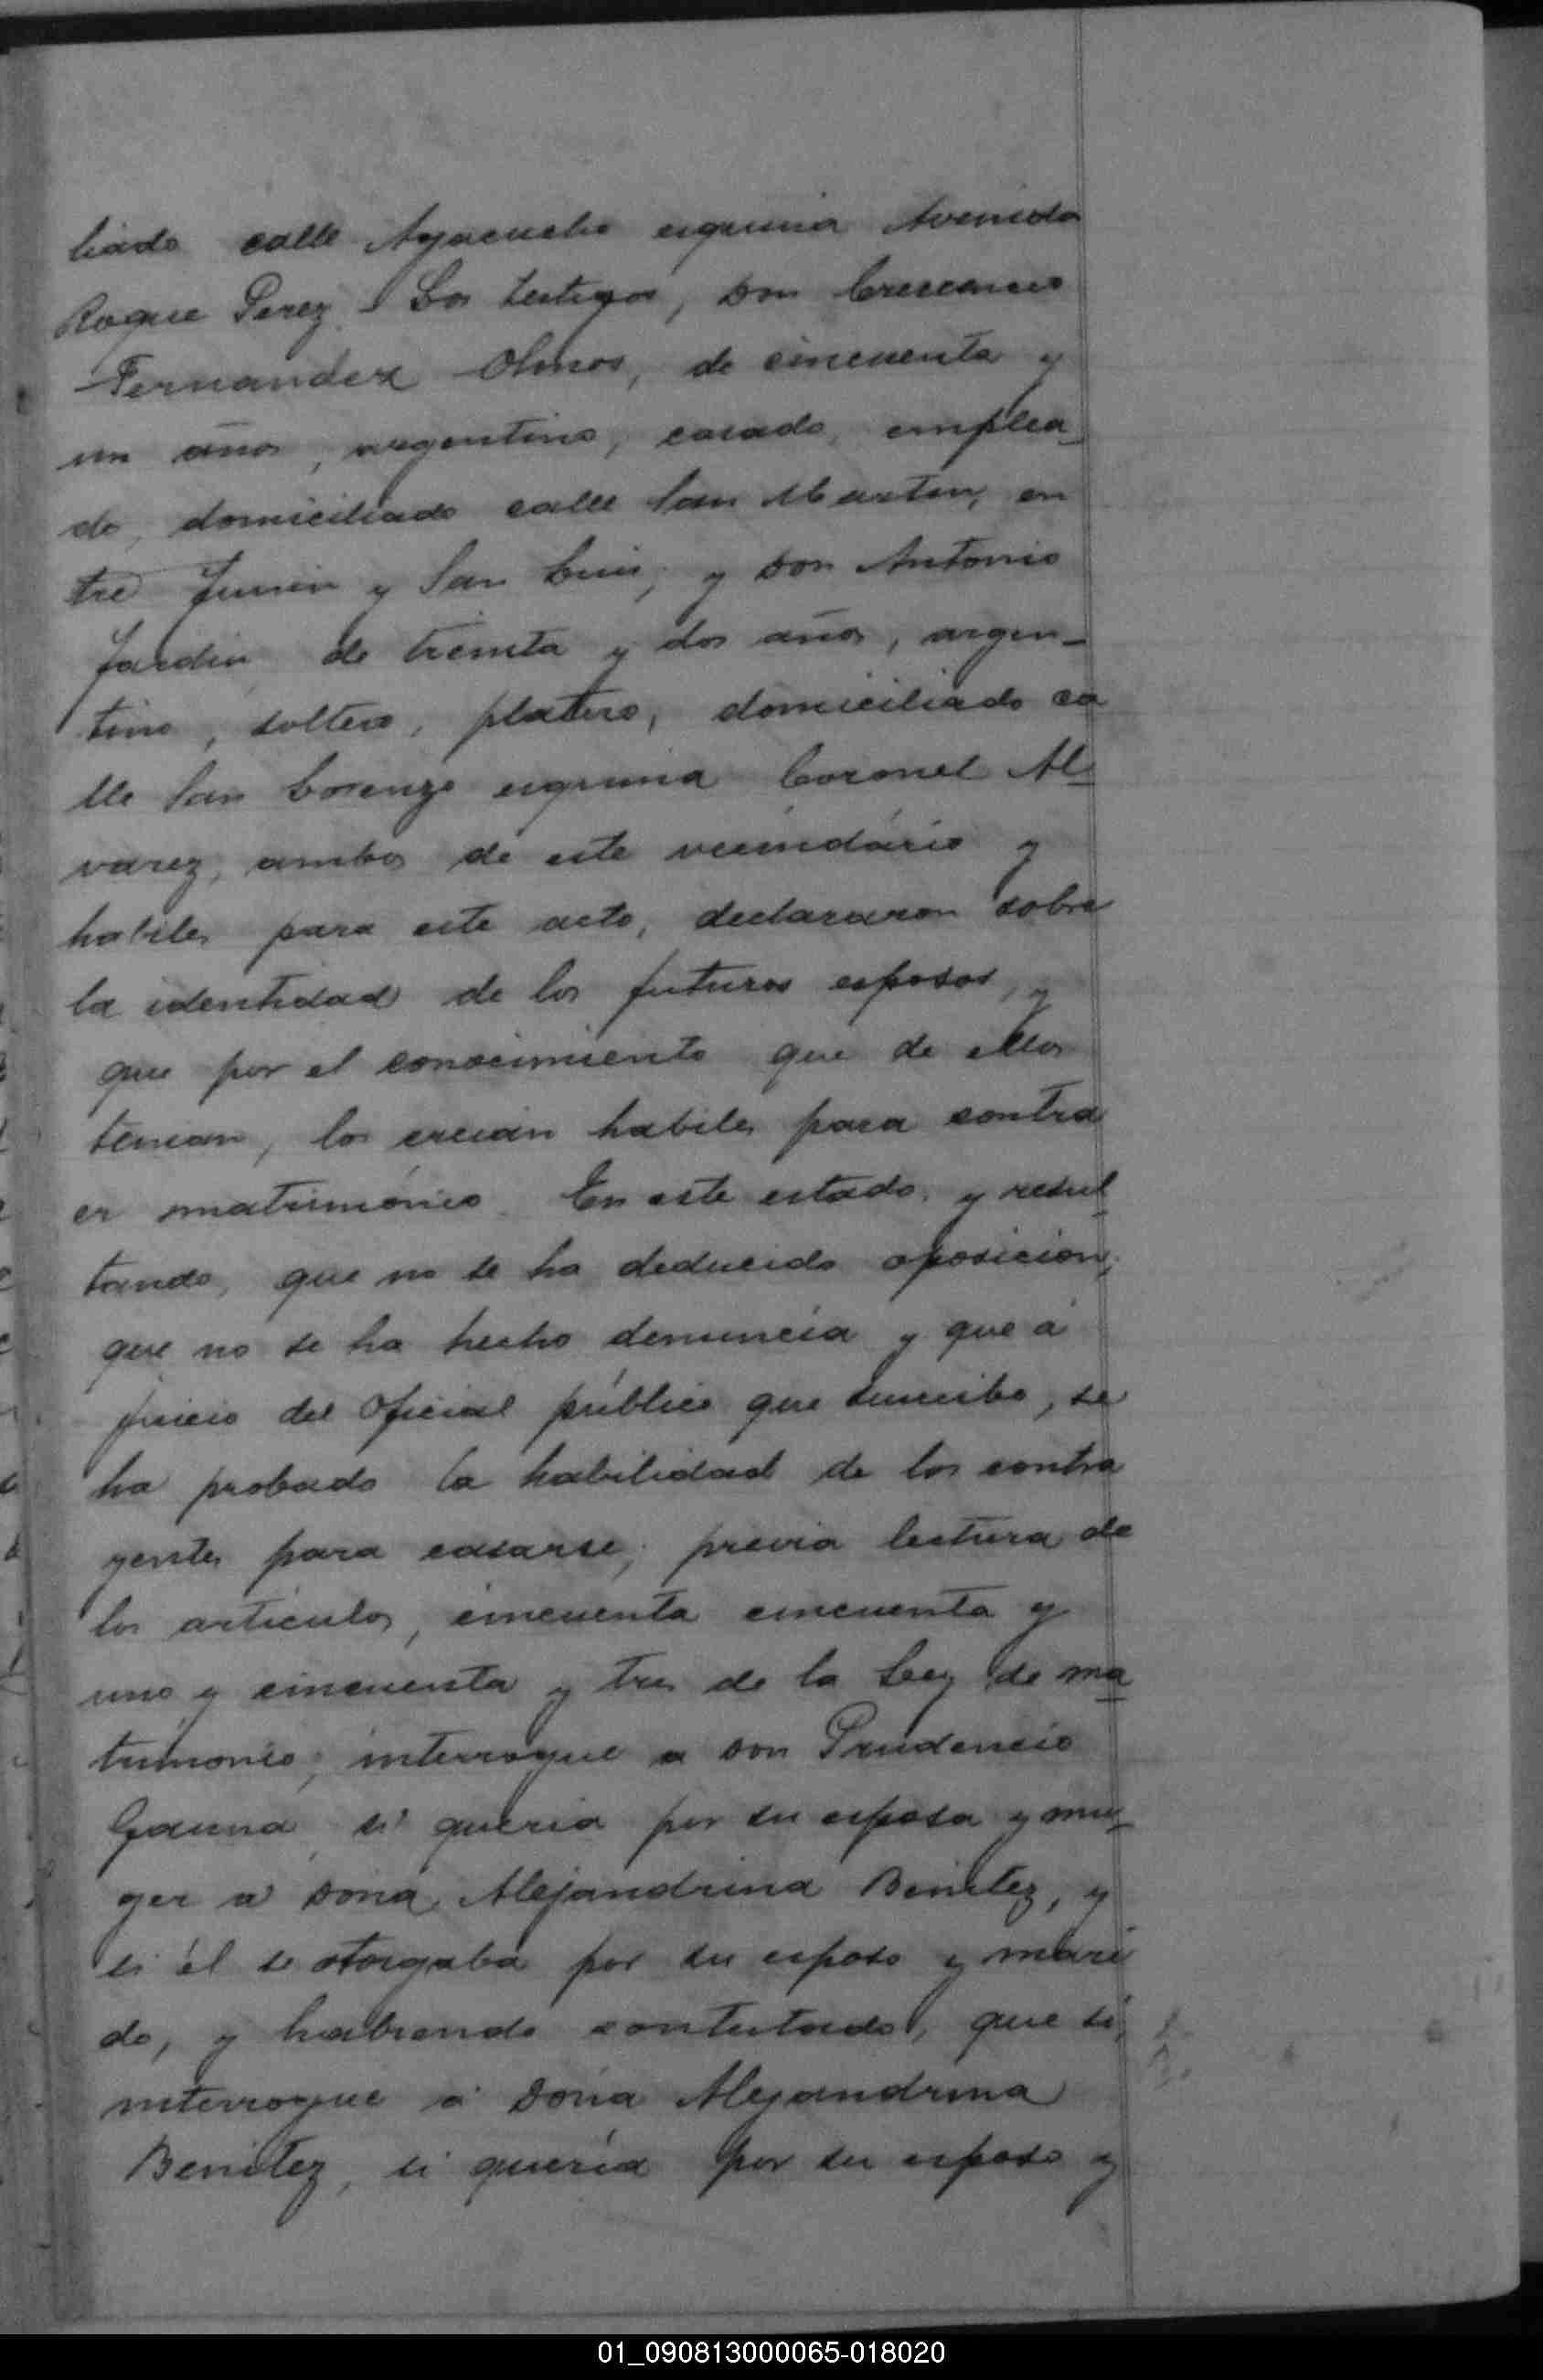 liado calle Ayacucho esquina Avenida
Roque Perez. Los testigos, Don
Fernandez Olmos, de cincuenta y
un años, argentino, casado, emplea_
do, domiciliado calle San Martin, en
tre Junin y San Luis, y Don Antonio
Jardin de treinta y dos años, argen_
tino, soltero, platero, domiciliado ca
lle San Lorenzo esquina Coronel Al_
varez, ambos de este vecindario y
habiles para este acto, declararon sobre
la identidad de los futuros esposos, y
que por el conocimiento que de ellos
tenian, los creian habiles para contra
er matrimónio. En este estado, y resul_
tando, que no se ha deducido oposicion,
que no se ha hecho denuncia y que á
juicio del Oficial público que suscribe, se
ha probado la habilidad de los contra
yentes para casarse, previa lectura de
los articulos, cincuenta cincuenta y
uno y cincuenta y tres de la Ley de ma_
trimonio, interrogue a Don Prudencio
Gauna, si queria por su esposa y mu_
ger a Doña Alejandrina Benitez, y
si él se otorgaba por su esposo y mari
do, y habiendo contestado, que si,
interrogue á Doña Alejandrina
Benitez, si quería por su esposo y
01_090813000065-018020